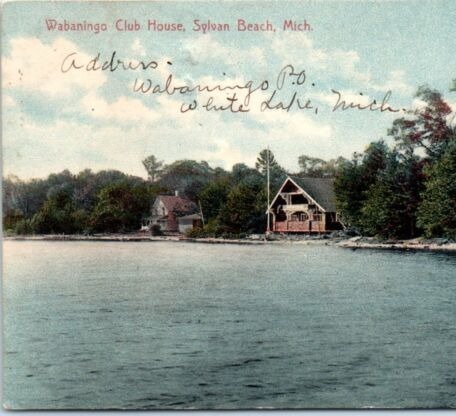 Wabaningo Club House, Sylvan Beach, Mich.
Address.
Wabaningo P.O.
White Lake, Mich.